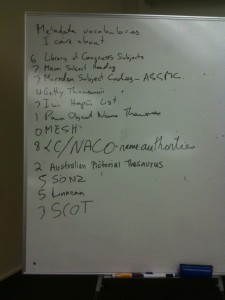 Metadata vocabularies
I care about
6 Library of Congress Subjects
? Maori Subject Heading
? Marsden Subject Codes - ASSMC.
4 Getty Thesaurus
? Iwi Hapū List
1 Object Name Thesaurus
0 MESH
8 LC/NACO - name authorities
2 Australian Pictorial Thesaurus
5 SONZ
5 Linnean
? SCOT